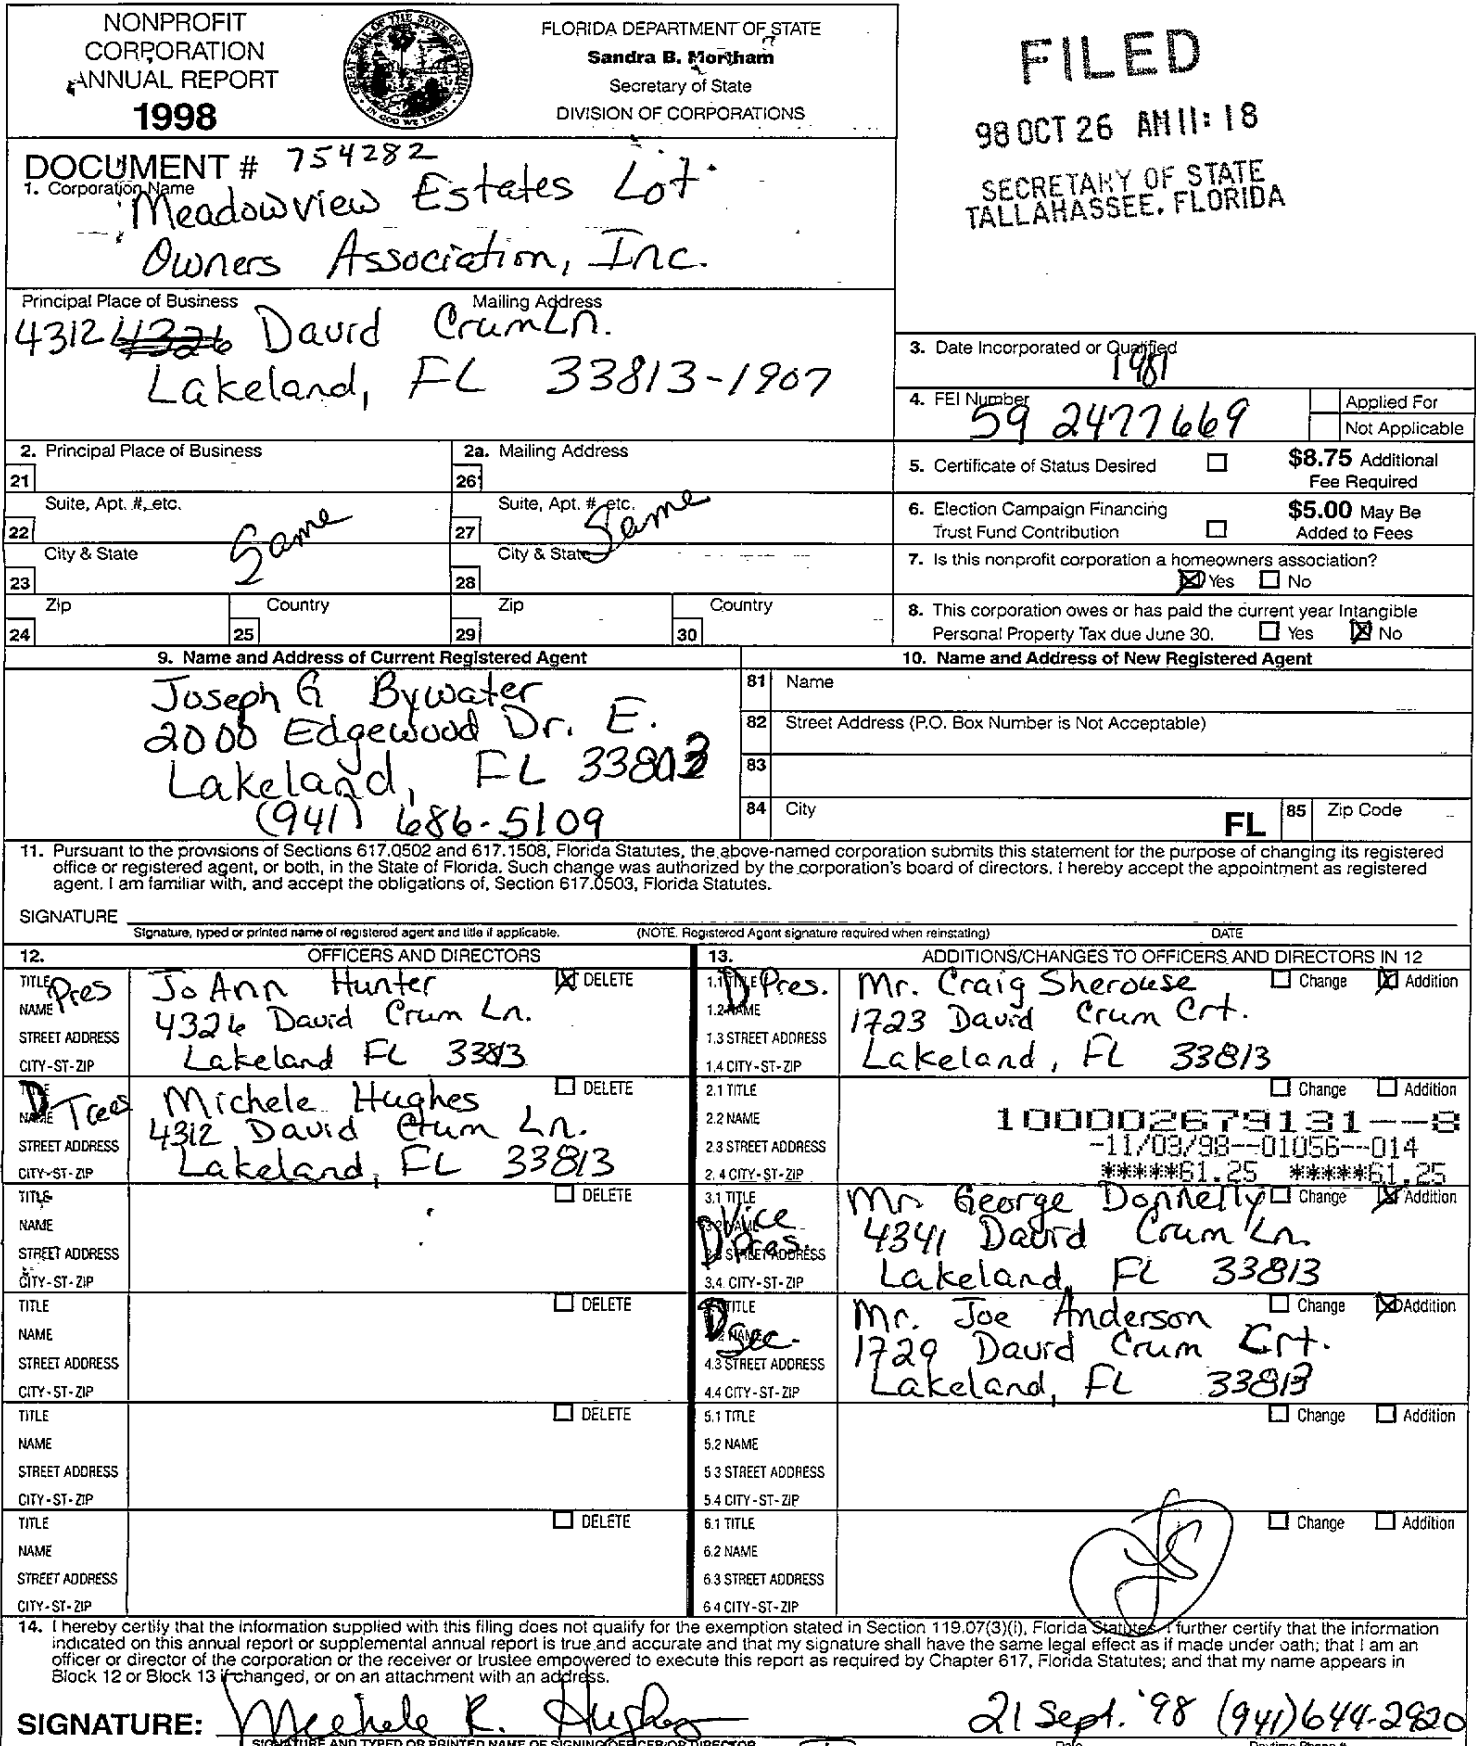 NONPROFIT
CORPORATION
ANNUAL REPORT
1998
FLORIDA DEPARTMENT OF STATE
Sandra B. Mortham
Secretary of State
DIVISION OF CORPORATIONS
FILED
98 OCT 26 AM 11:18
SECRETARY OF STATE
TALLAHASSEE, FLORIDA
DOCUMENT # 754282
1. Corporation Name
Meadowview Estates Lot
Owners Association, Inc.
Principal Place of Business Mailing Address
4312 4326 David Crum Ln.
Lakeland, FL 33813-1907
3. Date Incorporated or Qualified
1981
4. FEI Number
59 2477669
Applied For
Not Applicable
2. Principal Place of Business
21
2a. Mailing Address
26
5. Certificate of Status Desired
$8.75 Additional
Fee Required
Suite, Apt. #, etc.
22
Suite, Apt. #, etc.
27
Same
Same
6. Election Campaign Financing
Trust Fund Contribution
$5.00 May Be
Added to Fees
City & State
23
City & State
28
7. Is this nonprofit corporation a homeowners association?
Yes No
Zip
24
Country
25
Zip
29
Country
30
8. This corporation owes or has paid the current year Intangible
Personal Property Tax due June 30. Yes No
9. Name and Address of Current Registered Agent
Joseph G Bywater
2000 Edgewood Dr. E.
Lakeland, FL 33803
(941) 686-5109
10. Name and Address of New Registered Agent
81 Name
82 Street Address (P.O. Box Number is Not Acceptable)
83
84 City FL 85 Zip Code
11. Pursuant to the provisions of Sections 617.0502 and 617.1508, Florida Statutes, the above-named corporation submits this statement for the purpose of changing its registered
office or registered agent, or both, in the State of Florida. Such change was authorized by the corporation's board of directors. I hereby accept the appointment as registered
agent. I am familiar with, and accept the obligations of, Section 617.0503, Florida Statutes.
SIGNATURE
Signature, typed or printed name of registered agent and title if applicable. (NOTE. Registered Agent signature required when reinstating) DATE
12. OFFICERS AND DIRECTORS
TITLE Pres JoAnn Hunter DELETE
NAME 4326 David Crum Ln.
STREET ADDRESS
CITY-ST-ZIP Lakeland FL 33813
TITLE D Tres Michele Hughes DELETE
NAME 4312 David Crum Ln.
STREET ADDRESS
CITY-ST-ZIP Lakeland, FL 33813
TITLE DELETE
NAME
STREET ADDRESS
CITY-ST-ZIP
TITLE DELETE
NAME
STREET ADDRESS
CITY-ST-ZIP
TITLE DELETE
NAME
STREET ADDRESS
CITY-ST-ZIP
TITLE DELETE
NAME
STREET ADDRESS
CITY-ST-ZIP
13. ADDITIONS/CHANGES TO OFFICERS AND DIRECTORS IN 12
1.1 TITLE D Pres. Mr. Craig Sherouse Change Addition
1.2 NAME 1723 David Crum Crt.
1.3 STREET ADDRESS
1.4 CITY-ST-ZIP Lakeland, FL 33813
2.1 TITLE Change Addition
2.2 NAME 100002679131--8
2.3 STREET ADDRESS -11/03/98--01056--014
2.4 CITY-ST-ZIP *****61.25 *****61.25
3.1 TITLE D Vice Pres. Mr. George Donnelly Change Addition
3.2 NAME 4341 David Crum Ln.
3.3 STREET ADDRESS
3.4. CITY-ST-ZIP Lakeland, FL 33813
TITLE D Sec. Mr. Joe Anderson Change Addition
4.2 NAME 1729 David Crum Crt.
4.3 STREET ADDRESS
4.4 CITY-ST-ZIP Lakeland, FL 33813
5.1 TITLE Change Addition
5.2 NAME
5.3 STREET ADDRESS
5.4 CITY-ST-ZIP
6.1 TITLE Change Addition
6.2 NAME
6.3 STREET ADDRESS
6.4 CITY-ST-ZIP
14. I hereby certify that the information supplied with this filing does not qualify for the exemption stated in Section 119.07(3)(i), Florida Statutes. I further certify that the information
indicated on this annual report or supplemental annual report is true and accurate and that my signature shall have the same legal effect as if made under oath; that I am an
officer or director of the corporation or the receiver or trustee empowered to execute this report as required by Chapter 617, Florida Statutes; and that my name appears in
Block 12 or Block 13 if changed, or on an attachment with an address.
SIGNATURE: Michele R. Hughes 21 Sept. '98 (941)644-2920
SIGNATURE AND TYPED OR PRINTED NAME OF SIGNING OFFICER OR DIRECTOR Date Daytime Phone #